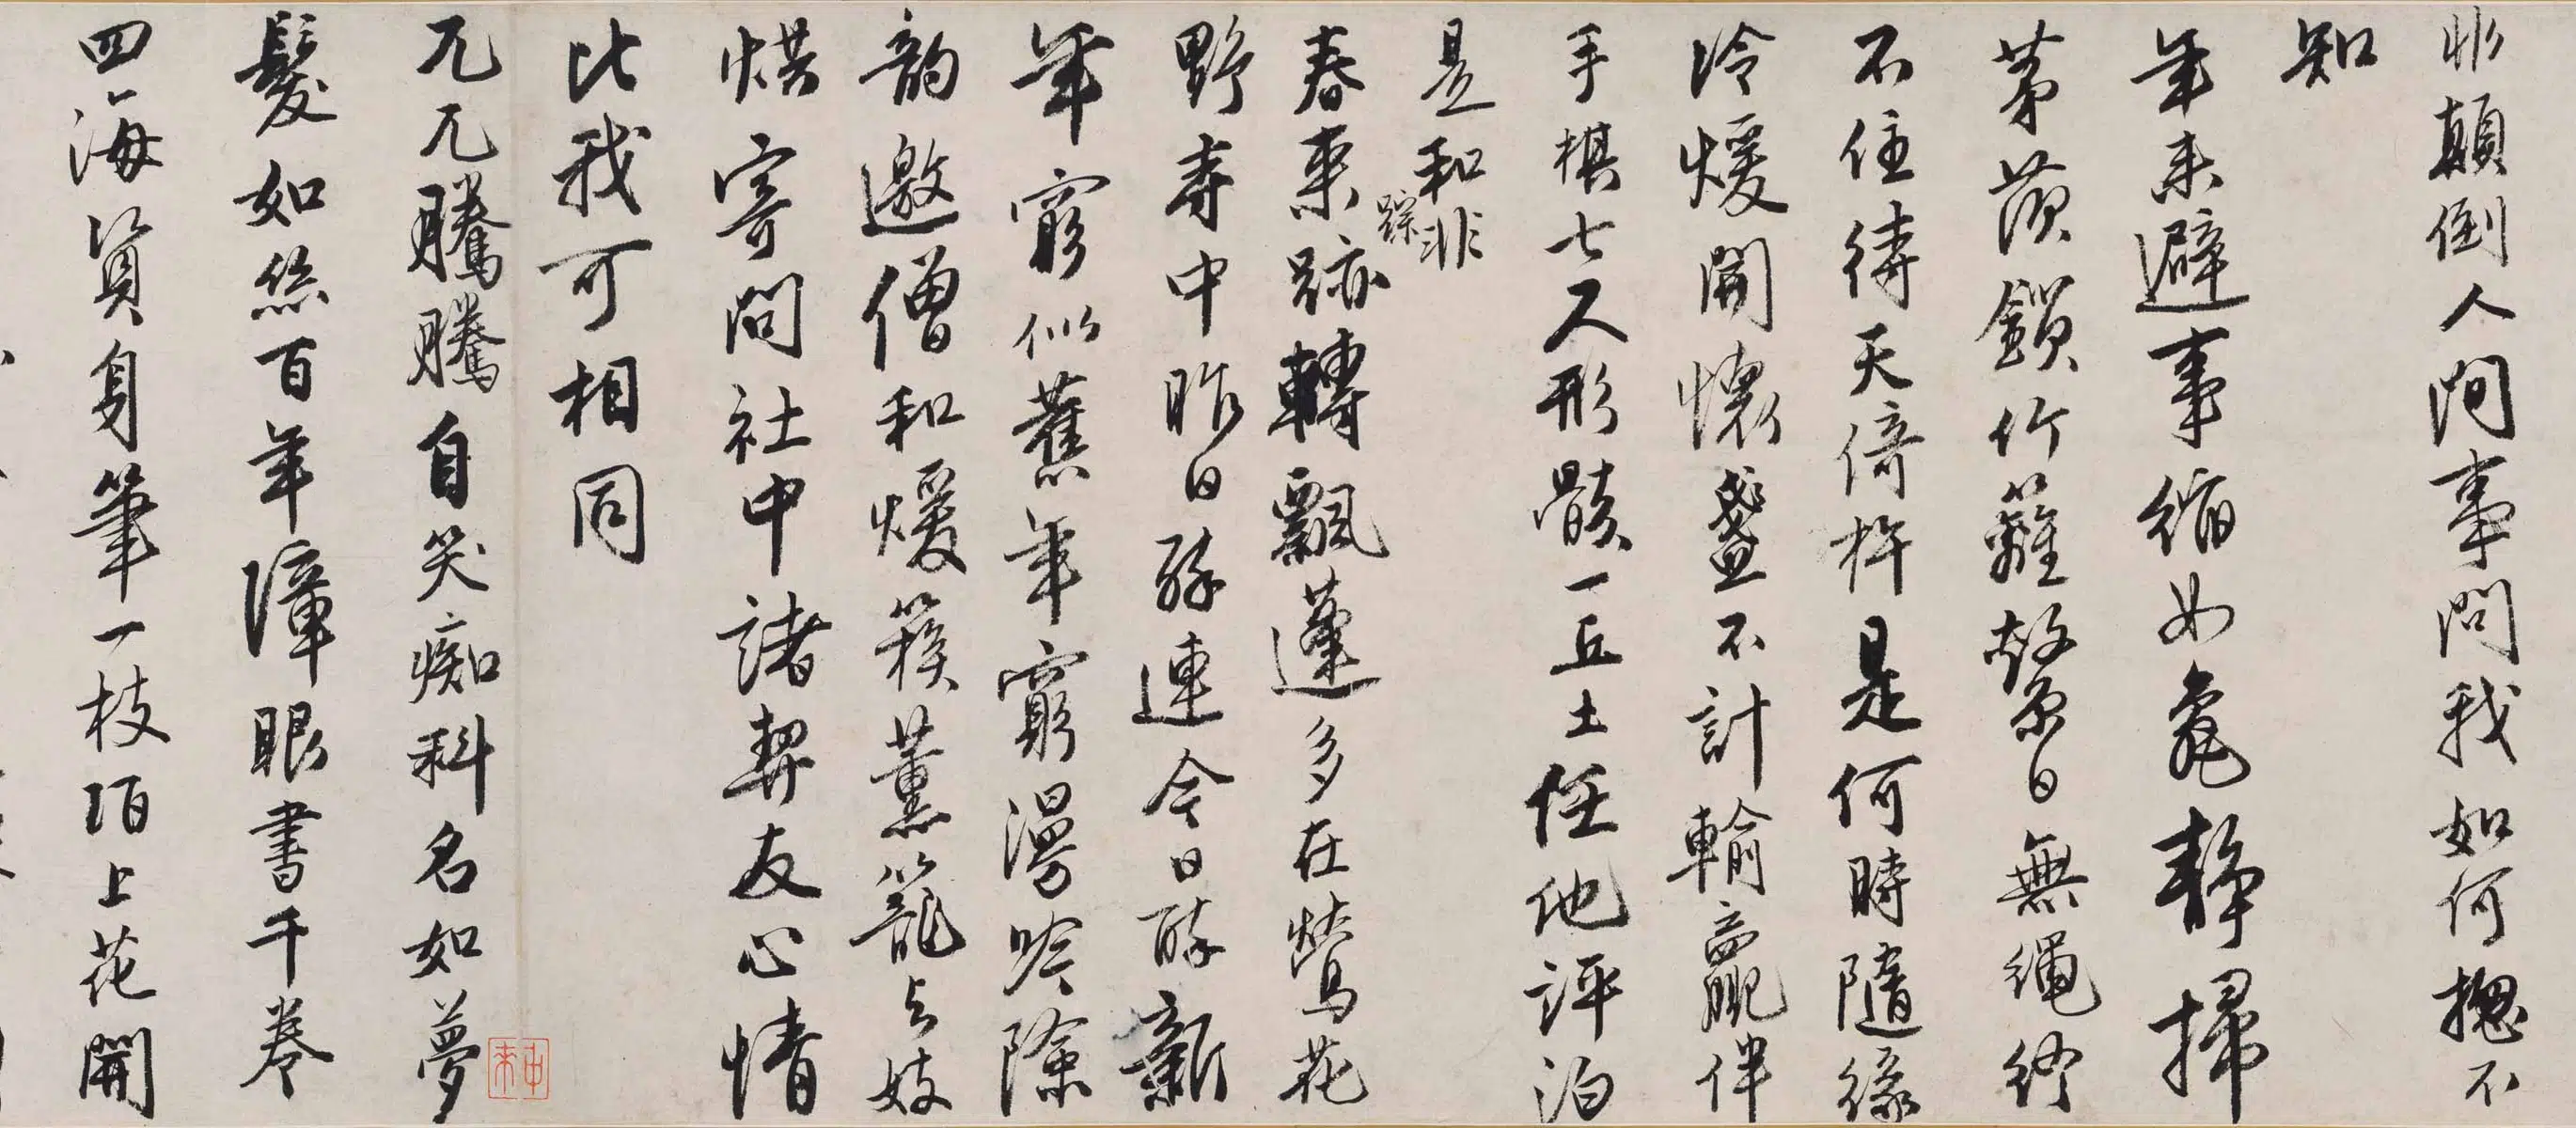 非顛倒人間事問我如何摠不
知
年来避事縮如龜靜掃
茅茨鎖竹籬繫日無繩終
不住待天倚杵是何時隨緣
冷煖開懷盞不計輸贏伴
手棋七尺形骸一丘土任他評泊
是和非
春来踪跡轉飄蓬多在鶯花
野寺中昨日醉連今日醉新
年窮似舊年窮漫吟除
韵邀僧和煖簇薰籠与妓
烘寄問社中諸契友心情
比我可相同
兀兀騰騰自笑痴科名如夢
髮如絲百年障眼書千卷
四海資身筆一枝陌上花開